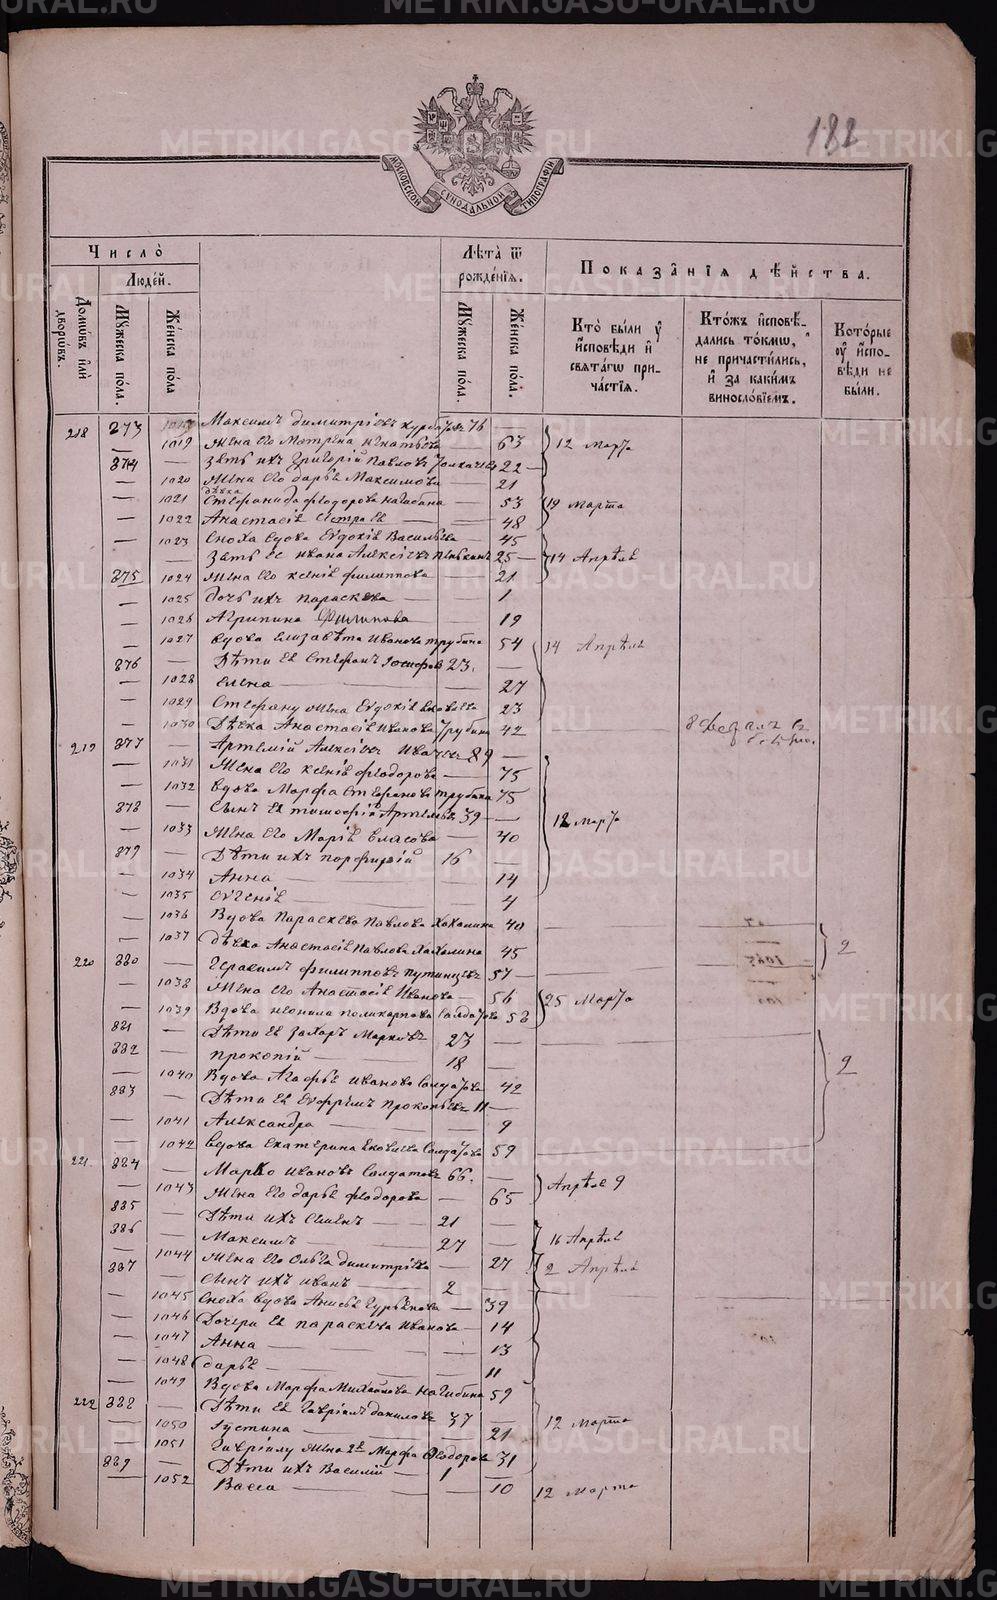 182
МОСКОВСКОЙ СѴНОДАЛЬНОЙ ТИПОГРАФІИ
Число̀
Людей.
Домѡвъ илѝ дворѡвъ.
Мꙋжеска пола.
Женска пола
Лѣта̀ ѿ рожденїѧ.
Мꙋжеска пола.
Женска пола.
Показанїѧ дѣйства.
Кто̀ были ᲂу҆ и҆сповѣди и҆ свѧтагѡ причастїѧ.
Кто́жъ и҆сповѣдались то́кмѡ, не причастились, и҆ за какимъ винословїемъ.
Кото́рые ᲂу҆ и҆сповѣди не были.
218 873 Максимъ Димитріевъ 76 —
— 1019 Жена его Матрена Игнатьева — 63 12 Марта
874 — Зять ихъ Григорій Павловъ 22 —
— 1020 Жена его Дарья Максимова — 21
— 1021 дѣвка Стефанида Феодорова Нагибина — 53 19 Марта
— 1022 Анастасія сестра ея — 48
— 1023 Сноха вдова Евдокія Васильева — 45
— Зять ее Иванъ Алексіевъ 25 — 14 Апрѣля
875 1024 Жена его Ксенія Филиппова — 21
— 1025 Дочь ихъ Параскева — 1
— 1026 Агрипина Филипова — 19
— 1027 Вдова Елизавѣта Иванова Трубина 54 14 Апрѣля
876 — Дѣти ея Стефанъ Іосифовъ 23. —
— 1028 Елена — 27
— 1029 Стефану жена Евдокія Яковлева 23
— 1030 Дѣвка Анастасія Иванова Трубина 42 8 Февраля
219 877 — Артемій Алексіевъ 89 —
— 1031 Жена его Ксенія Феодорова — 75
— 1032 Вдова Марфа Стефанова Трубина 75
878 — Сынъ ея Тимофей Артемьевъ 39 — 12 Марта
— 1033 Жена его Марія Власова — 40
879 — Дѣти ихъ Порфирій 16 —
— 1034 Анна — 14
— 1035 Евгенія — 4
— 1036 Вдова Параскева Павлова 40 —
— 1037 Дѣвка Анастасія Павлова 45 2
220 880 — Герасимъ Филипповъ Путинцевъ 57 —
— 1038 Жена его Анастасія Иванова 56 25 Марта
— 1039 Вдова Неонила Поликарпова Солдатова 58
881 — Дѣти ея Захаръ Марковъ 23 —
882 — Прокопій — 18 — 2
— 1040 Вдова Агафья Иванова Солдатова 42
883 — Дѣти ея Ефремъ Прокопьевъ 11 —
— 1041 Александра — 9
— 1042 Вдова Екатерина Яковлева Солдатова 59
221 884 — Марко Ивановъ Солдатовъ 66. —
— 1043 Жена его Дарья Феодорова — 65 Апрѣля 9
885 — Дѣти ихъ Семенъ — 21 —
886 — Максимъ — 27 — 16 Апрѣля
— 1044 Жена его Ольга Димитріева — 27 2 Апрѣля
887 — Сынъ ихъ Иванъ — 2 —
— 1045 Сноха вдова Анисья Гурьянова — 39
— 1046 Дочери ея Параскева Иванова — 14
— 1047 Анна — 13
— 1048 Дарья — 11
— 1049 Вдова Марфа Михайлова Нагибина 59
222 888 — Дѣти ея Гавріилъ Даниловъ 37 — 12 Марта
— 1050 Густина — 21
— 1051 Гавріилу жена 2я Марфа Феодорова 31
889 — Дѣти ихъ Василій — 1 —
— 1052 Васса — 10 12 Марта
METRIKI.GASO-URAL.RU